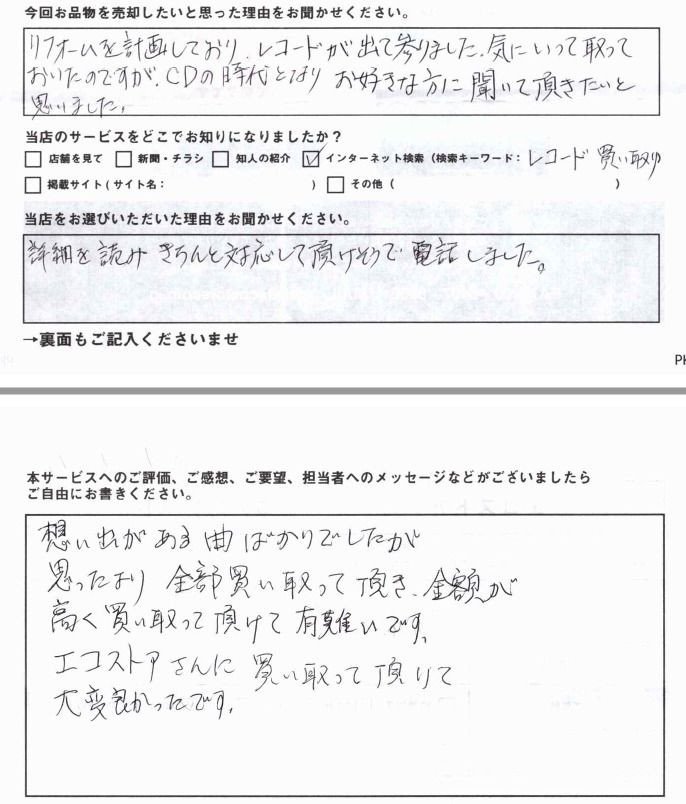 今回お品物を売却したいと思った理由をお聞かせください。
リフォームを計画しており、レコードが出て参りました。気にいって取って
おいたのですが、CDの時代となり お好きな方に聞いて頂きたいと
思いました。
当店のサービスをどこでお知りになりましたか？
□ 店舗を見て □ 新聞・チラシ □ 知人の紹介 ☑ インターネット検索（検索キーワード：レコード 買い取り）
□ 掲載サイト（サイト名： ） □ その他（ ）
当店をお選びいただいた理由をお聞かせください。
詳細を読み きちんと対応して頂けそうで 電話しました。
→裏面もご記入くださいませ
本サービスへのご評価、ご感想、ご要望、担当者へのメッセージなどがございましたら
ご自由にお書きください。
想い出がある曲ばかりでしたが
思ったより 全部買い取って頂き、金額が
高く買い取って頂けて有難いです。
エコストアさんに 買い取って頂けて
大変良かったです。